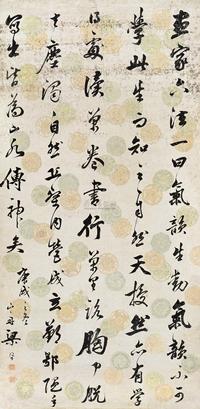 畫家六法一曰氣韻生動氣韻不可
學此生而知之自然天授然亦有學
得處讀萬卷書行萬里路胸中脫
去塵濁自然丘壑內營成立鄞鄂隨手
寫出皆為山水傳神矣
庚戌
梁